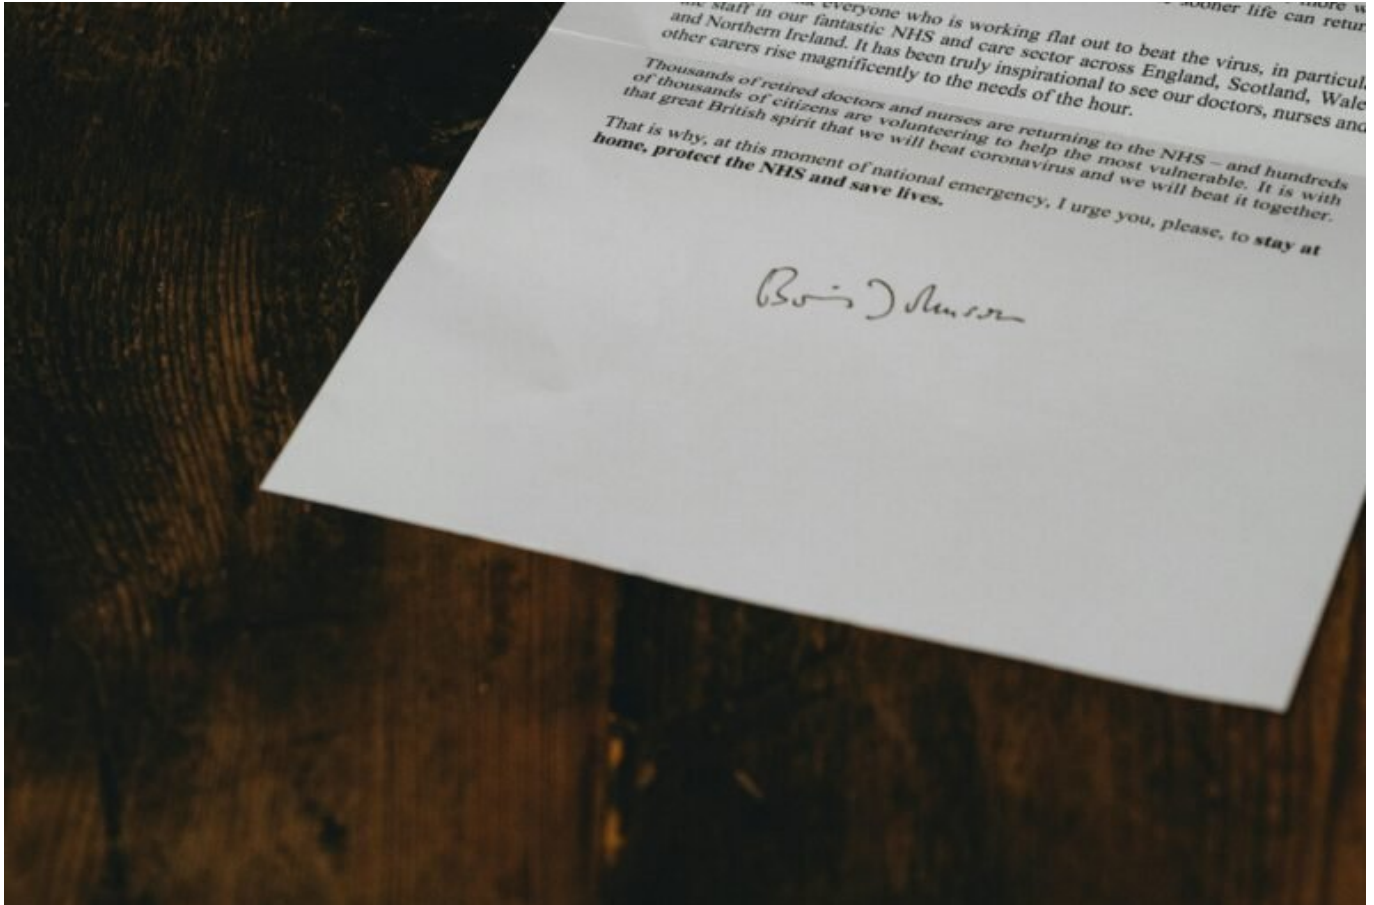 more w
sooner life can retur
everyone who is working flat out to beat the virus, in particul
the staff in our fantastic NHS and care sector across England, Scotland, Wale
and Northern Ireland. It has been truly inspirational to see our doctors, nurses and
other carers rise magnificently to the needs of the hour.
Thousands of retired doctors and nurses are returning to the NHS – and hundreds
of thousands of citizens are volunteering to help the most vulnerable. It is with
that great British spirit that we will beat coronavirus and we will beat it together.
That is why, at this moment of national emergency, I urge you, please, to stay at
home, protect the NHS and save lives.
Boris Johnson